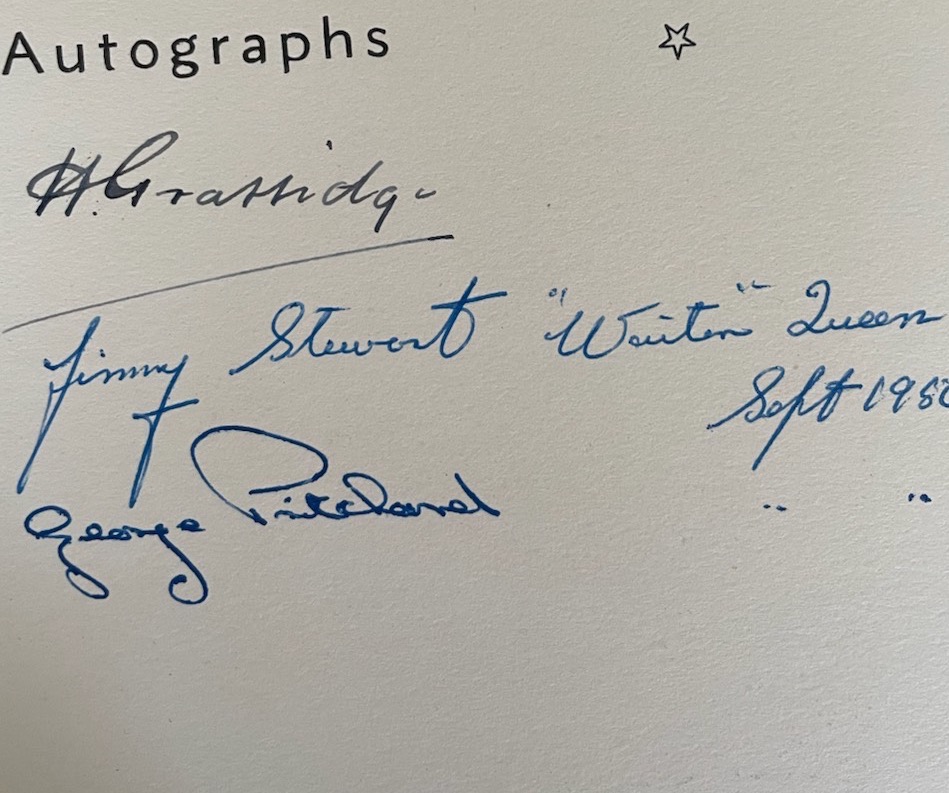 Autographs ☆
H. Grassidge
Jimmy Stewart "Waiter" Queen
Sept
George Pritchard " "